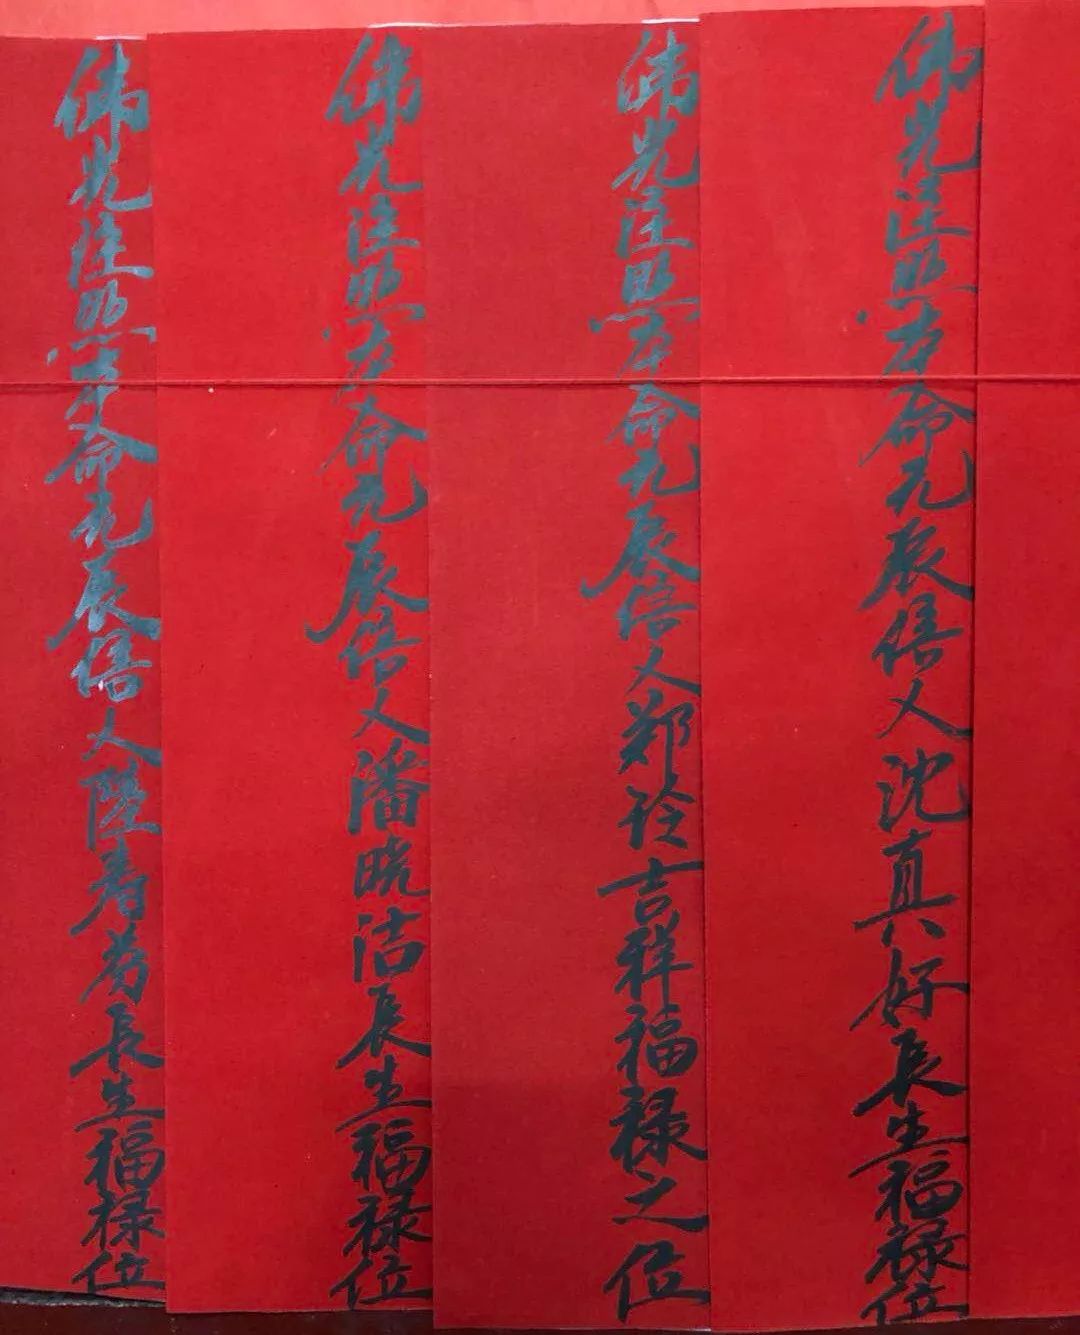 佛光注照本命元辰信人沈真好長生福禄位
佛光注照本命元辰信人郑玲吉祥福禄之位
佛光注照本命元辰信人潘晓洁長生福禄位
佛光注照本命元辰信人陸春芳長生福禄位